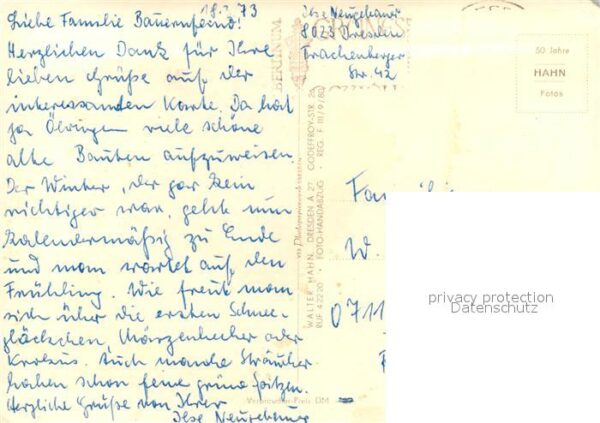 18.2.73
Liebe Familie Bauernfeind!
Herzlichen Dank für Ihre
lieben Grüße auf der
interessanten Karte. Da hat
ja Öhringen viele schöne
alte Bauten aufzuweisen.
Der Winter, der gar kein
richtiger war, geht nun
kalendermäßig zu Ende
und man wartet auf den
Frühling. Wie freut man
sich über die ersten Schnee-
glöckchen, Märzenbecher oder
Krokus. Auch manche Sträucher
haben schon feine grüne Spitzen.
Herzliche Grüße von Ihrer
Ilse Neugebauer
Ilse Neugebauer
8023 Dresden
Trachenberger
Str. 42
50 Jahre
HAHN
Fotos
WALTER HAHN, DRESDEN A 27, GODEFFROY-STR. 26
RUF 47220 · FOTO-HANDABZUG · REG. F III/9/80
Verbraucher-Preis DM
Fa
W.
0711
privacy protection
Datenschutz